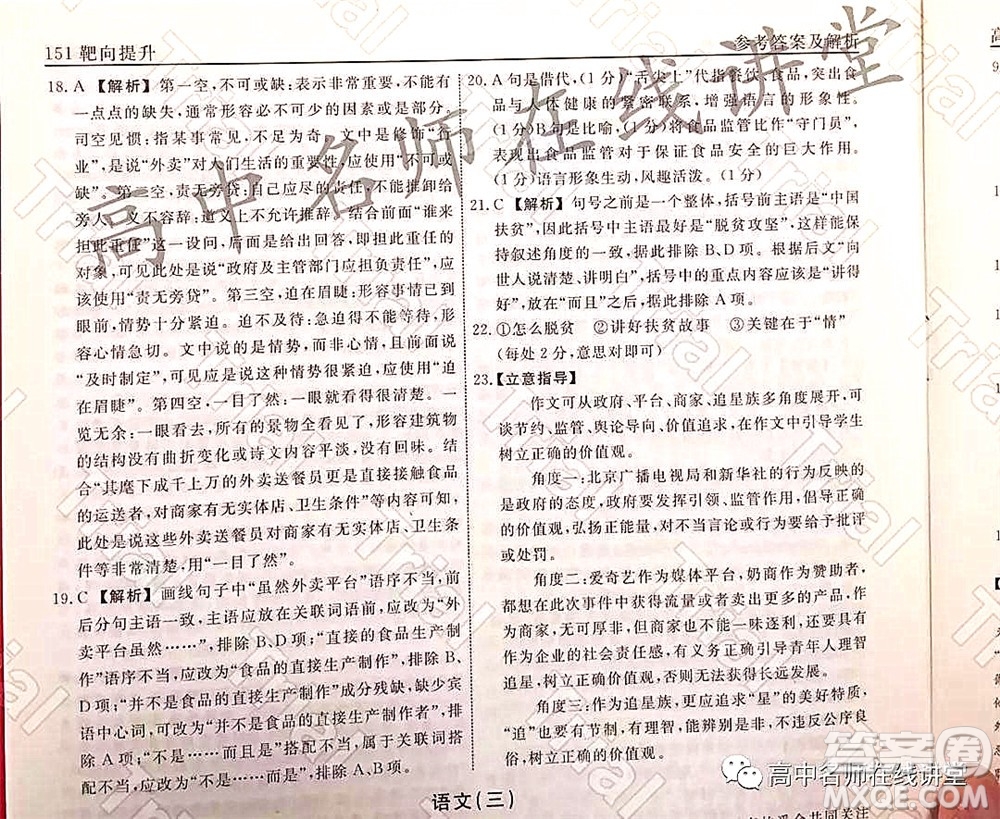 151 靶向提升
参考答案及解析
18. A 【解析】 第一空,不可或缺:表示非常重要,不能有
一点点的缺失,通常形容必不可少的因素或是部分。
司空见惯:指某事常见,不足为奇。文中是修饰“行
业”,是说“外卖”对人们生活的重要性,应使用“不可或
缺”。第二空,责无旁贷:自己应尽的责任,不能推卸给
旁人。义不容辞:道义上不允许推辞。结合前面“谁来
担此重任”这一设问,后面应是指出担此重任的
对象,可见此处是说“政府及主管部门应担负责任”,应
该使用“责无旁贷”。第三空,迫在眉睫:形容事情已到
眼前,情势十分紧迫。迫不及待:急迫得不能再等,形
容心情急切。文中说的是情势,而非心情,后面说
“及时制定”,可见强调的是情势紧迫,所以应使用“迫
在眉睫”。第四空,一目了然:一眼就看得很清楚。一
览无余:一眼看去,所有的景物全看见了,形容建筑物
的结构没有曲折变化或诗文内容平淡,没有回味。结
合“其麾下成千上万的外卖送餐员更是食品安全状况
的运送者,对商家有无实体店、卫生条件”可
知,此处是说这些外卖送餐员对商家有无实体店、卫生条
件等非常清楚,所以应使用“一目了然”。
19. C 【解析】 画线句子中“虽然外卖平台”语序不当,前
后分句主语一致,主语应放在关联词语前,应改为“外
卖平台虽然……”,排除B、D项;“直接的食品生产制
作”语序不当,应改为“食品的直接生产制作”,排除B、
D项;“并不是食品的直接生产制作”成分残缺,缺少宾
语中心词,可改为“并不是食品的直接生产制作者”,排
除D项;“不是……而且是”搭配不当,属于关联词语搭
配不当,应改为“不是……而是”,排除A、B项。
20. A句是借代,(1分)“舌尖上”代指餐饮、食品,突出食
品与人体健康的紧密联系,增强语言的形象性。
(1分)B句是比喻,(1分)将食品监管比作“守门员”,
表现出食品监管对于保证食品安全的巨大作用。
(1分)语言形象生动,风趣活泼。(1分)
21. C 【解析】 句号之前是一个整体,括号前主语是“中国
扶贫”,因此括号中主语最好是“脱贫攻坚”,这样能保
持叙述角度的一致,据此排除B、D项。根据后文“向
世人说清楚、讲明白”,括号中的重点内容应该是“讲得
好”,放在“而且”之后,据此排除A项。
22. ①怎么脱贫 ②讲好扶贫故事 ③关键在于“情”
(每处2分,意思对即可)
23. 【立意指导】
作文可从政府、平台、商家、追星族多角度展开,可
谈节约、监管、舆论导向、价值追求,在作文中引导学生
树立正确的价值观。
角度一:北京广播电视局和新华社的行为反映的
是政府的态度,政府要发挥引领、监管作用,倡导正确
的价值观,弘扬正能量,对不当言论或行为给予批评
或处罚。
角度二:爱奇艺作为媒体平台,奶商作为赞助者,
想在此次事件中获得流量或者卖出更多的产品,作为
商家,无可厚非,但商家也不能一味逐利,还应有相应
的社会责任感,更应积极引导青年人理智
追星。
角度三:追星族应该追求“星”的美好特质,
“追”也要有节制,有理智,能辨别是非,不违反公序良
俗,树立正确的价值观。
语文(三)
高中名师在线讲堂
Trial
答案圈
MXQE.COM
高中名师在线讲堂